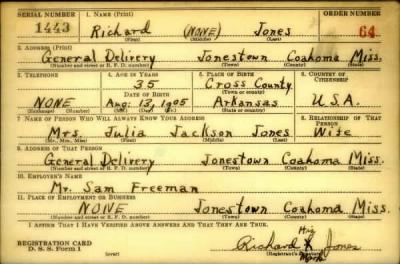 SERIAL NUMBER 1. NAME (Print) ORDER NUMBER
1443 Richard (NONE) Jones 64
(First) (Middle) (Last)
2. ADDRESS (Print)
General Delivery Jonestown Coahoma Miss.
(Number and street or R. F. D. number) (Town) (County) (State)
3. TELEPHONE 4. AGE IN YEARS 5. PLACE OF BIRTH 6. COUNTRY OF CITIZENSHIP
35 Cross County
DATE OF BIRTH (Town or county)
NONE Aug. 13, 1905 Arkansas U.S.A.
(Exchange) (Number) (Mo.) (Day) (Yr.) (State or country)
7. NAME OF PERSON WHO WILL ALWAYS KNOW YOUR ADDRESS 8. RELATIONSHIP OF THAT PERSON
Mrs. Julia Jackson Jones Wife
(Mr., Mrs., Miss) (First) (Middle) (Last)
9. ADDRESS OF THAT PERSON
General Delivery Jonestown Coahoma Miss.
(Number and street or R. F. D. number) (Town) (County) (State)
10. EMPLOYER'S NAME
Mr. Sam Freeman
11. PLACE OF EMPLOYMENT OR BUSINESS
NONE Jonestown Coahoma Miss.
(Number and street or R. F. D. number) (Town) (County) (State)
I AFFIRM THAT I HAVE VERIFIED ABOVE ANSWERS AND THAT THEY ARE TRUE.
His
REGISTRATION CARD Richard X Jones
D. S. S. Form 1 (over) (Registrant's signature) Mark